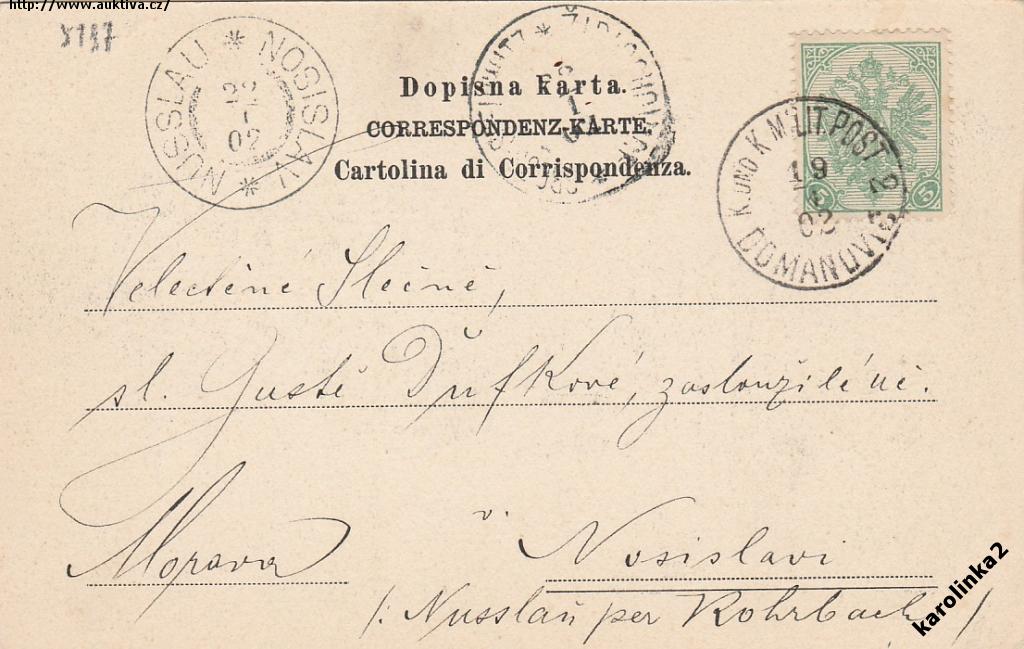 http://www.auktiva.cz/
NUSSLAU * NOSISLAV *
22
02
Dopisna karta.
CORRESPONDENZ-KARTE.
Cartolina di Corrispondenza.
K. UND K. MILIT. POST
DOMANOVIĆ
19
02
5
Velectěné Slečně,
sl. Gustě Dufkové, zasloužilé uč.
Morava
v. Nosislavi
/: Nusslau per Rohrbach /
karolinka2